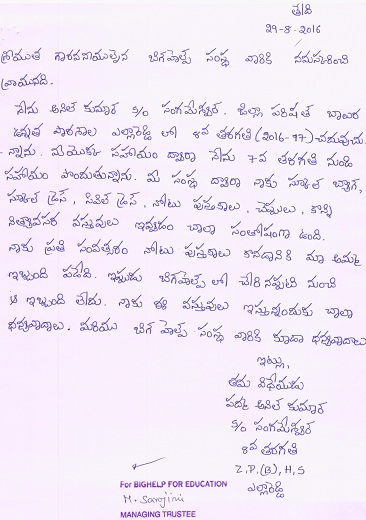 తేది
29-8-2016
శ్రీయుత గౌరవనీయులైన బిగ్‌హెల్ప్ సంస్థ వారికి నమస్కరించి
వ్రాయునది.
నేను అనిల్ కుమార్ S/o సంగమేశ్వర్. జిల్లా పరిషత్ బాలుర
ఉన్నత పాఠశాల ఎల్లారెడ్డి లో 8వ తరగతి (2016-17) చదువుచు
న్నాను. మీయొక్క సహాయం ద్వారా నేను 7వ తరగతి నుండి
సహాయం పొందుతున్నాను. మీ సంస్థ ద్వారా నాకు స్కూల్ బ్యాగ్,
స్కూల్ డ్రెస్, సివిల్ డ్రెస్, నోటు పుస్తకాలు, చెప్పులు, కొన్ని
నిత్యావసర వస్తువులు ఇవ్వడం చాలా సంతోషంగా ఉంది.
నాకు ప్రతి సంవత్సరం నోటు పుస్తకాలు కొనడానికి మా అమ్మ
ఇబ్బంది పడేది. ఇప్పుడు బిగ్‌హెల్ప్ లో చేరినప్పటి నుంచి
ఏ ఇబ్బంది లేదు. నాకు ఈ వస్తువులు ఇస్తున్నందుకు చాలా
ధన్యవాదాలు. మరియు బిగ్ హెల్ప్ సంస్థ వారికి కూడా ధన్యవాదాలు
ఇట్లు,
తమ విధేయుడు
పద్మ అనిల్ కుమార్
S/o సంగమేశ్వర్
8వ తరగతి
Z.P.(B), H,S
ఎల్లారెడ్డి
For BIGHELP FOR EDUCATION
M. Sarojini
MANAGING TRUSTEE